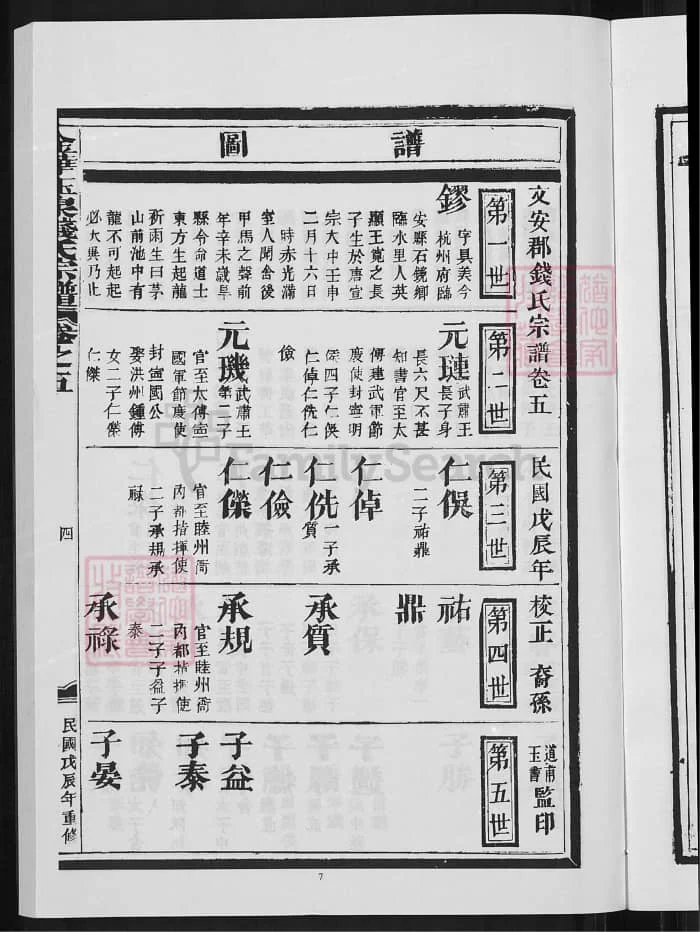 譜圖
文安郡錢氏宗譜卷五
民國戊辰年
校正
裔孫
道甫
玉書
監印
第一世
鏐
字具美今
杭州府臨
安縣石鏡鄉
臨水里人英
顯王寬之長
子生於唐宣
宗大中壬申
二月十六日
時赤光滿
室人聞舍後
甲馬之聲前
年辛未歲旱
縣令命道士
東方生起龍
祈雨生曰茅
山前池中有
龍不可起起
必大異乃止
第二世
元璉
武肅王
長子身
長六尺不甚
知書官至太
傅建武軍節
度使封宣明
侯四子仁俁
仁倬仁侁仁
儉
元璣
武肅王
第二子
官至太傅寧
國軍節度使
封宣國公
娶洪州鍾傳
女二子仁傑
仁傑
第三世
仁俁
二子祐鼎
仁倬
仁侁
一子承
質
仁儉
仁傑
官至睦州衙
內都指揮使
二子承規承
祿
第四世
祐
鼎
承質
承規
官至睦州衙
內都指揮使
二子子益子
泰
承祿
第五世
子益
子泰
子晏
錢氏宗譜
卷之五
四
民國戊辰年重修
7
FamilySearch